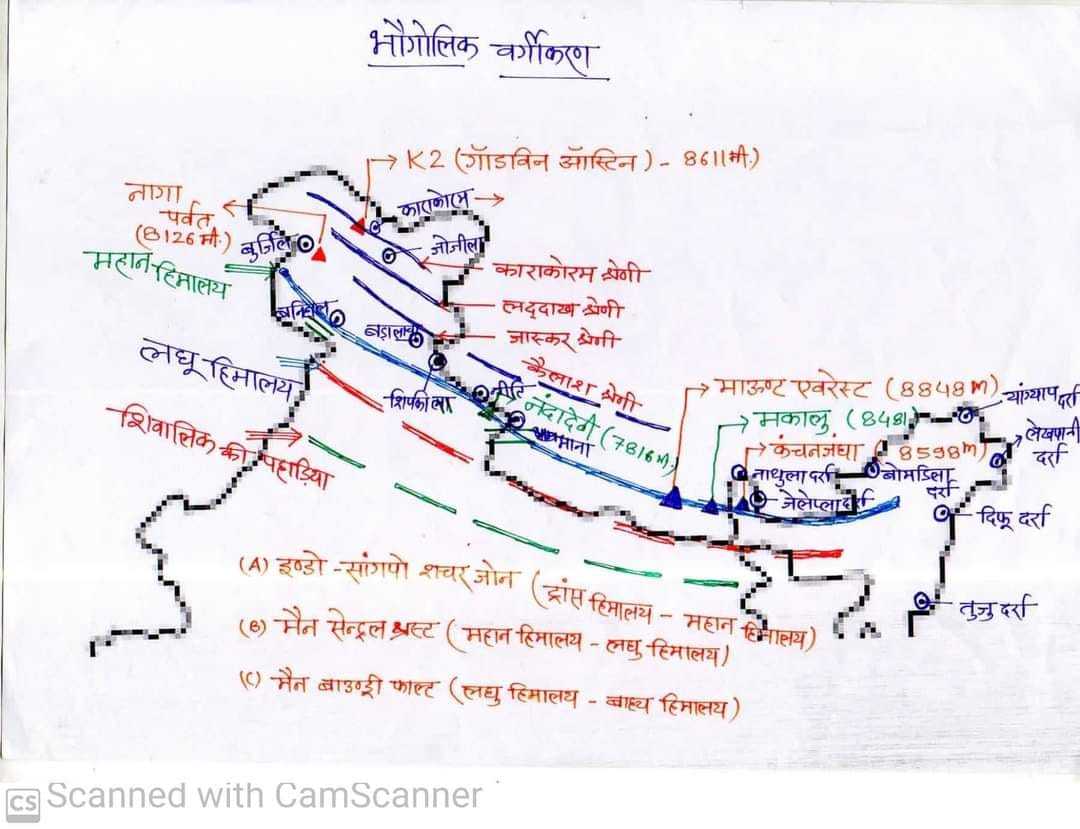 भौगोलिक वर्गीकरण
K2 (गॉडविन ऑस्टिन) - 8611मी.)
नागा
पर्वत
(8126 मी.)
काराकोरम
बुर्जिल
जोजीला
महान हिमालय
काराकोरम श्रेणी
लद्दाख श्रेणी
बनिहाल
बड़ालाचा
जास्कर श्रेणी
लघु हिमालय
कैलाश श्रेणी
शिपकी ला
नीति
माऊण्ट एवरेस्ट (8848m)
यांग्याप दर्रा
नंदादेवी (7816मी.)
मकालु (8481)
शिवालिक की पहाड़िया
माना
कंचनजंघा (8598m)
लेखपानी
दर्रा
नाथुला दर्रा
बोमडिला
दर्रा
जेलेप्ला दर्रा
दिफू दर्रा
(A) इण्डो - सांगपो शचर जोन (ट्रांस हिमालय - महान हिमालय)
तुजु दर्रा
(B) मैन सेन्ट्रल थ्रस्ट (महान हिमालय - लघु हिमालय)
(C) मैन बाउण्ड्री फाल्ट (लघु हिमालय - बाह्य हिमालय)
CS Scanned with CamScanner